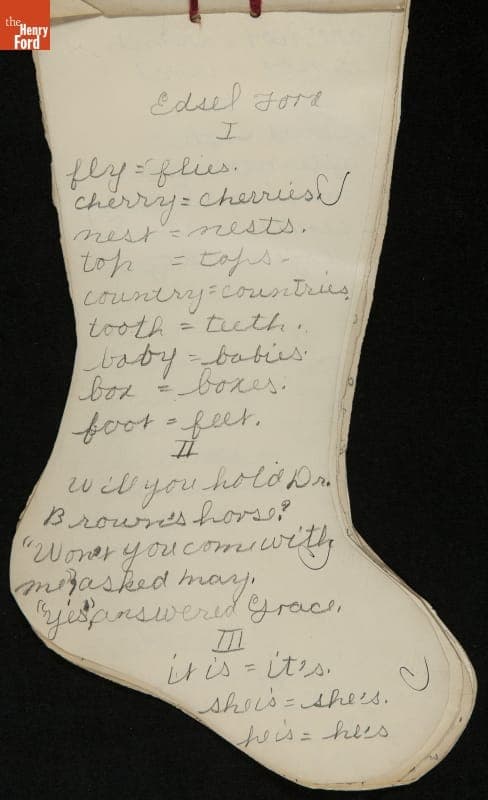 the
Henry
Ford
Edsel Ford
I
fly = flies.
cherry = cherries.
nest = nests.
top = tops.
country = countries.
tooth = teeth.
baby = babies.
box = boxes.
foot = feet.
II
Will you hold Dr.
Brown's horse?
"Won't you come with
me? asked may.
"Yes", answered Grace.
III
it is = it's.
she is = she's.
he is = he's